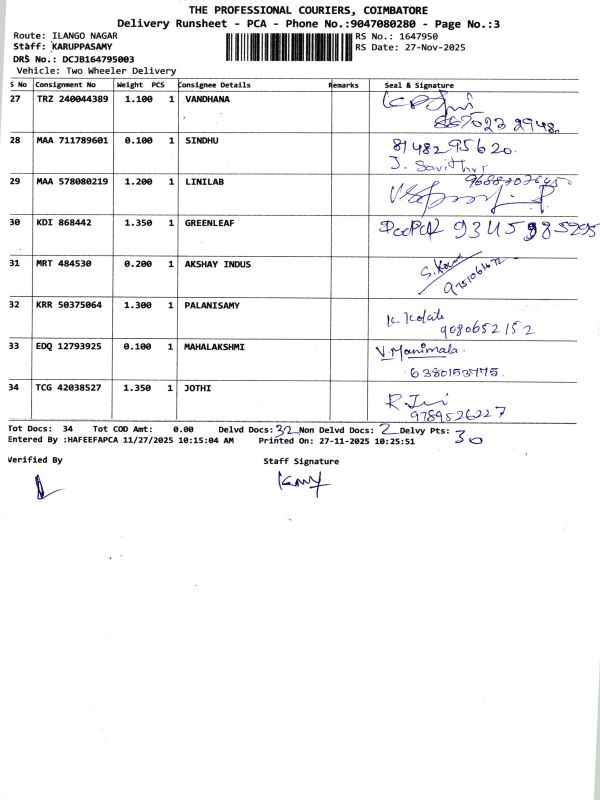 THE PROFESSIONAL COURIERS, COIMBATORE
Delivery Runsheet - PCA - Phone No.:9047080280 - Page No.:3
Route: ILANGO NAGAR
RS No.: 1647950
Staff: KARUPPASAMY
RS Date: 27-Nov-2025
DRS No.: DCJB164795003
Vehicle: Two Wheeler Delivery
S No Consignment No Weight PCS Consignee Details Remarks Seal & Signature
27 TRZ 240044389 1.100 1 VANDHANA
28 MAA 711789601 0.100 1 SINDHU 8148295620.
J. Savithri
29 MAA 578080219 1.200 1 LINILAB
30 KDI 868442 1.350 1 GREENLEAF 9345985295
31 MRT 484530 0.200 1 AKSHAY INDUS
32 KRR 50375064 1.300 1 PALANISAMY
9080652152
33 EDQ 12793925 0.100 1 MAHALAKSHMI V.Manimala.
34 TCG 42038527 1.350 1 JOTHI
9789526227
Tot Docs: 34 Tot COD Amt: 0.00 Delvd Docs: 32 Non Delvd Docs: 2 Delvy Pts: 30
Entered By :HAFEEFAPCA 11/27/2025 10:15:04 AM Printed On: 27-11-2025 10:25:51
Verified By Staff Signature